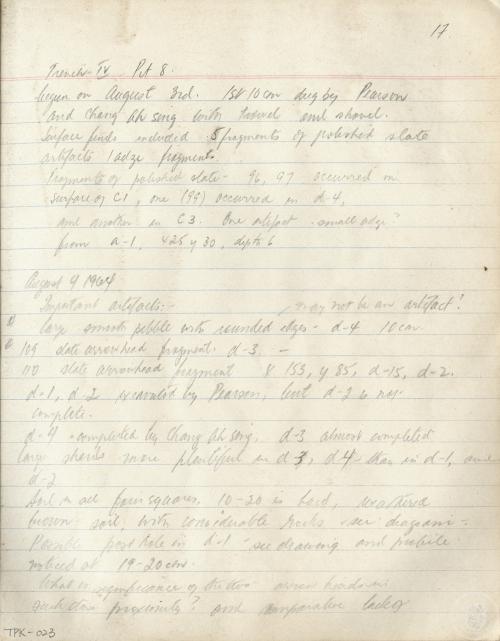 17.
Trench-IV Pit 8.
begun on August 3rd. 1st 10 cm dug by Pearson
and Chang Ah sing with trowel and shovel.
Surface finds included 5 fragments of polished slate
artifacts 1 adze fragment.
Fragments of polished slate - 96, 97 occurred on
surface of C1, one (99) occurred in d-4,
and another in C3. One artifact - small adge?
from a-1, 425 y 30, depth 6
August 4 1964
Important artifacts:- may not be an artifact?
large smooth pebble with rounded edges - d-4 10 cm
109 slate arrowhead fragment. d-3 -
110 slate arrowhead fragment 153, y 85, d-15, d-2.
d-1, d-2 excavated by Pearson, but d-2 is not
complete.
d-4 - completed by Chang Ah sing, d-3 almost completed
large sherds more plentiful in d3, d4 than in d-1, and
d-2
Soil in all four squares, 10-20 is hard,
brown soil, with considerable rocks - see diagram -
Possible post hole in d-1 - see drawing and profile -
noticed at 19-20 cm.
What is significance of the two arrow heads in
such close proximity? and comparative lack of
TPK-023